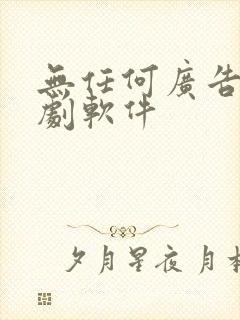 無任何廣告
劇軟件
夕月星夜 月